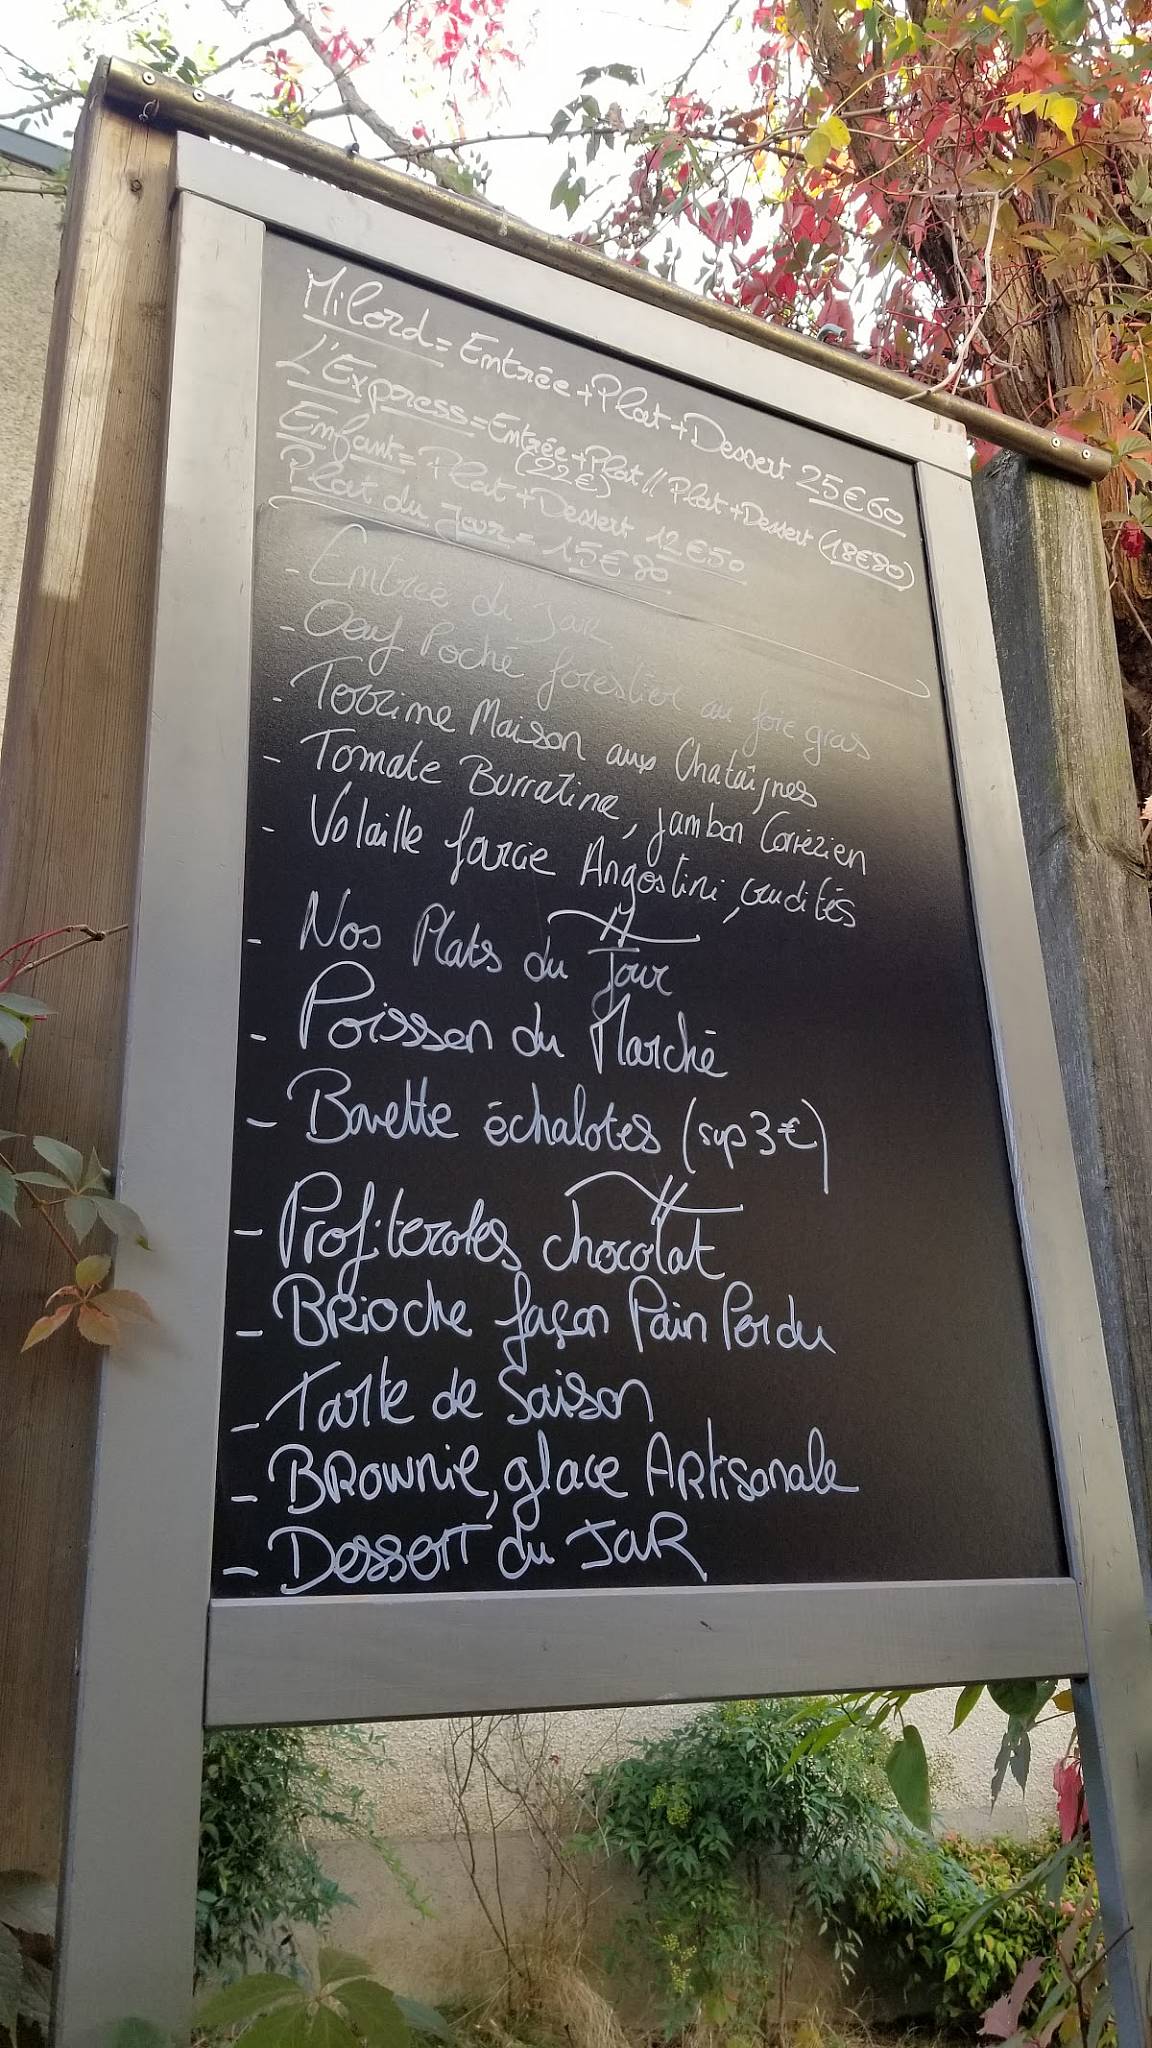 Milord = Entrée + Plat + Dessert 25€60
L'Express = Entrée + Plat // Plat + Dessert (18€80)
(22€)
Enfant = Plat + Dessert 12€50
Plat du Jour = 15€80
- Entrée du JouR
- Oeuf Poché forestier au foie gras
- Terrine Maison aux Chataîgnes
- Tomate Burratina, jambon Corrézien
- Volaille farcie Angostini, crudités
- Nos Plats du Jour
- Poisson du Marché
- Bavette échalotes (sup 3€)
- Profiteroles chocolat
- BRioche façon Pain Perdu
- Tarte de Saison
- BRownie, glace ARtisanale
- Dessert du JouR